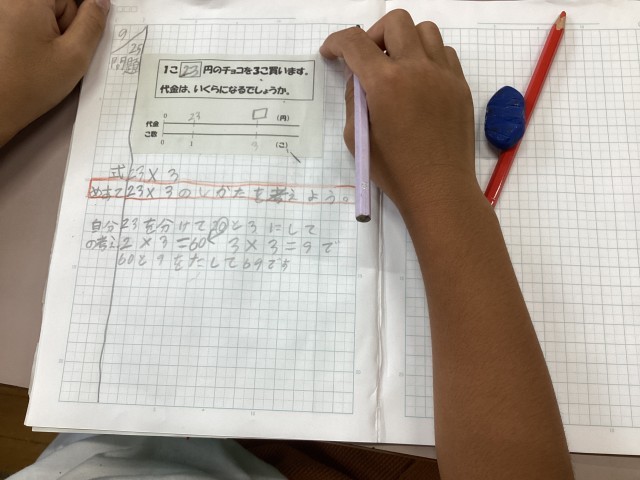 9/25
問題
1こ 23 円のチョコを3こ買います。
代金は、いくらになるでしょうか。
0 23 □ (円)
代金
こ数
0 1 3 (こ)
式 23×3
めあて 23×3のしかたを考えよう。
自分 23を分けて20と3にして
の考え 2×3=60 3×3=9で
60と9をたして69です